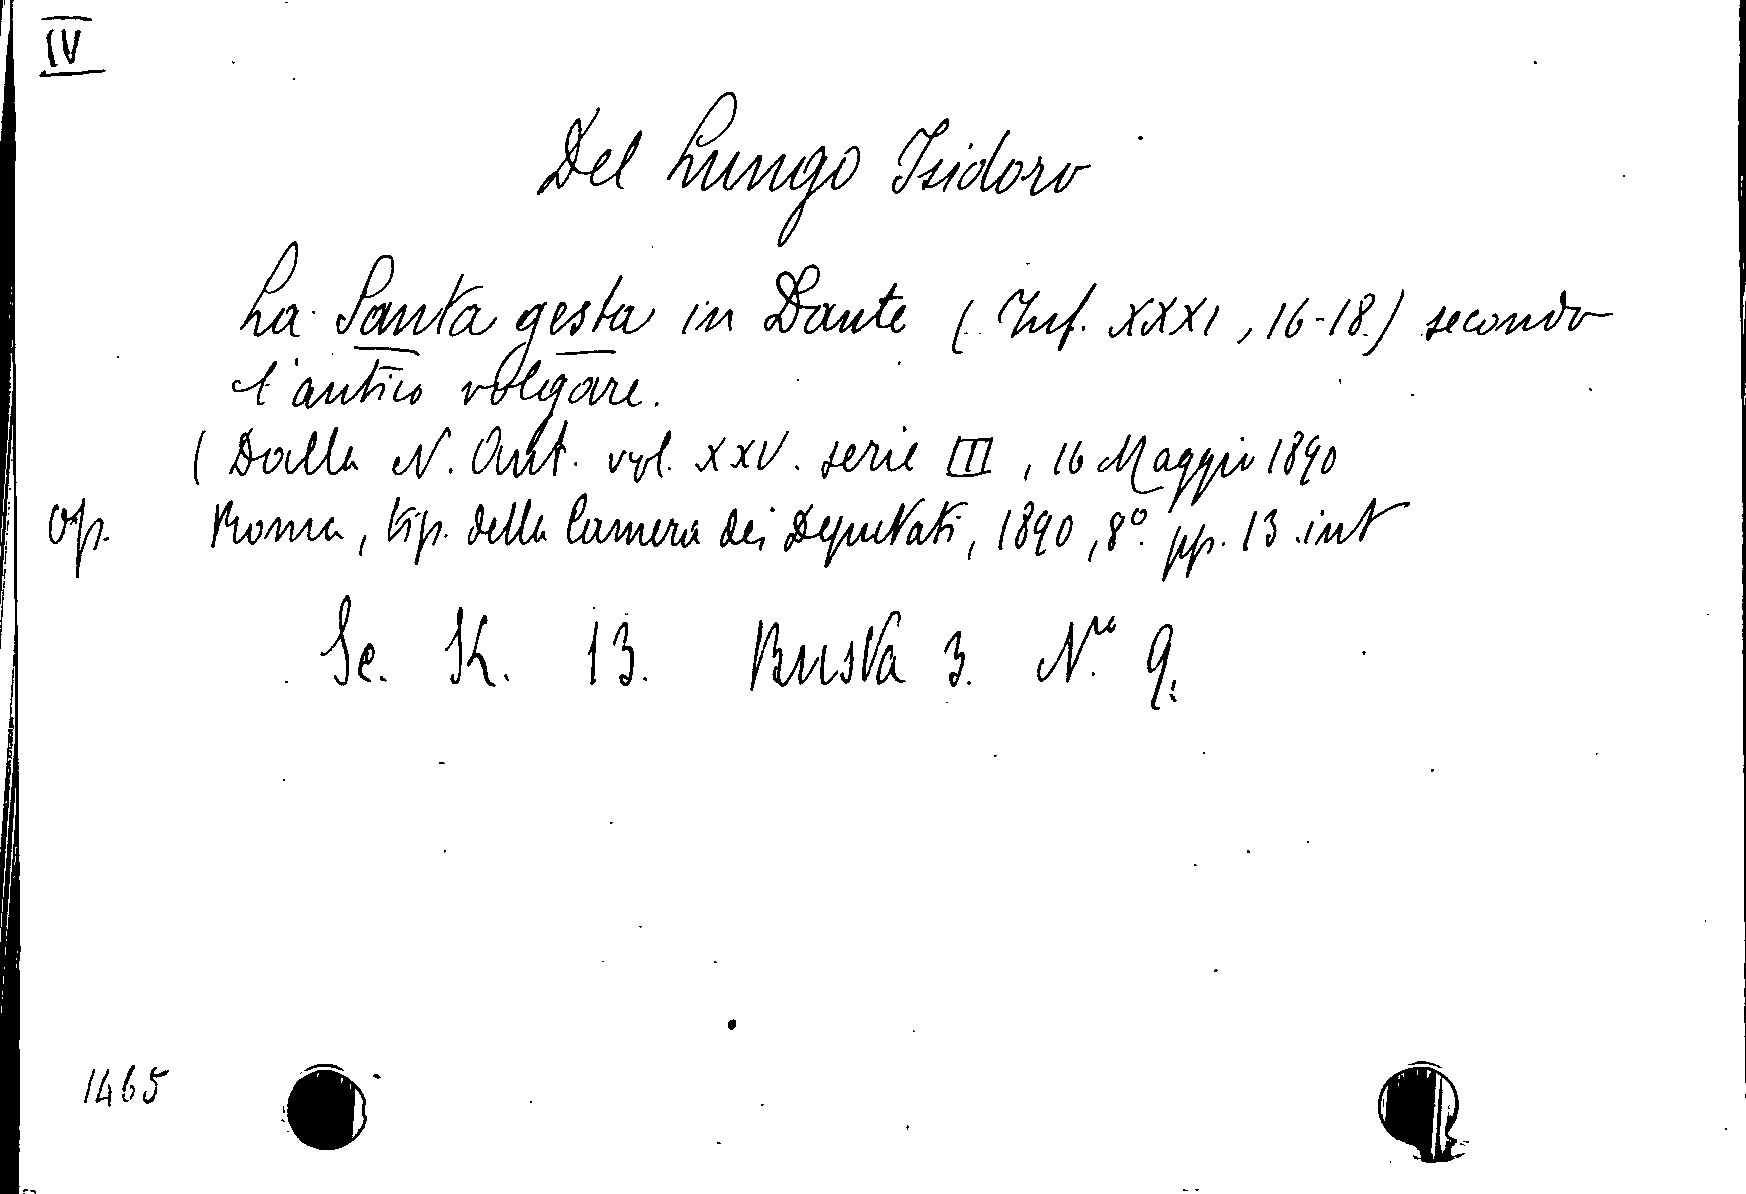 IV
Del Lungo Isidoro
La Santa gesta in Dante (Inf. XXXI, 16-18) secondo
l'antico volgare.
(Dalla N. Ant. vol. XXV. serie III, 16 Maggio 1890
op. Roma, tip. della Camera dei Deputati, 1890, 8º. pp. 13 int
Sc. K. 13. Busta 3. Nro 9.
1465